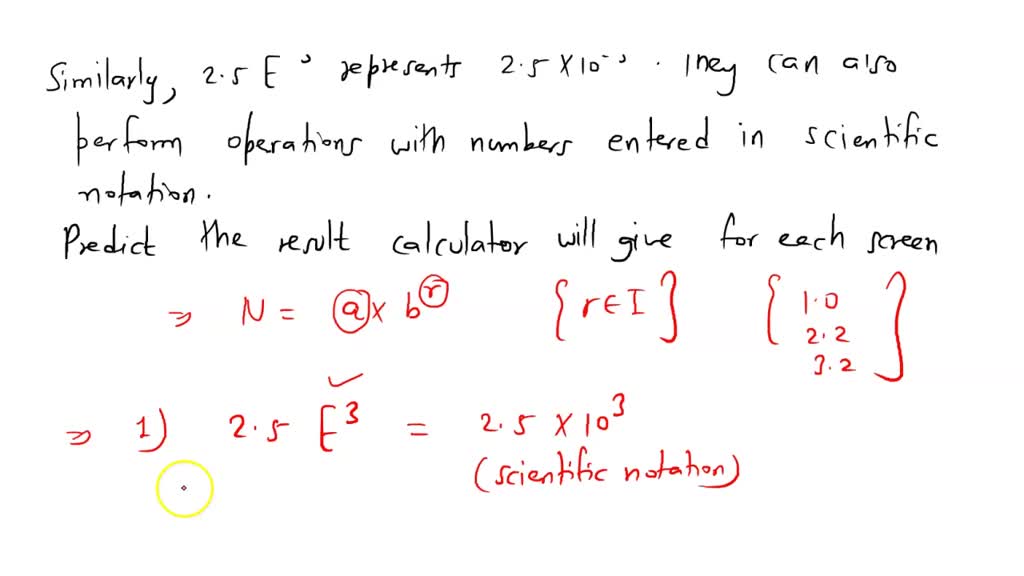 Similarly, 2.5 E⁻³ represents 2.5 × 10⁻³. They can also
perform operations with numbers entered in scientific
notation.
Predict the result calculator will give for each screen
⇒ N = a × b^r {r ∈ I} {1.0
2.2
3.2}
⇒ 1) 2.5 E³ = 2.5 × 10³
(scientific notation)